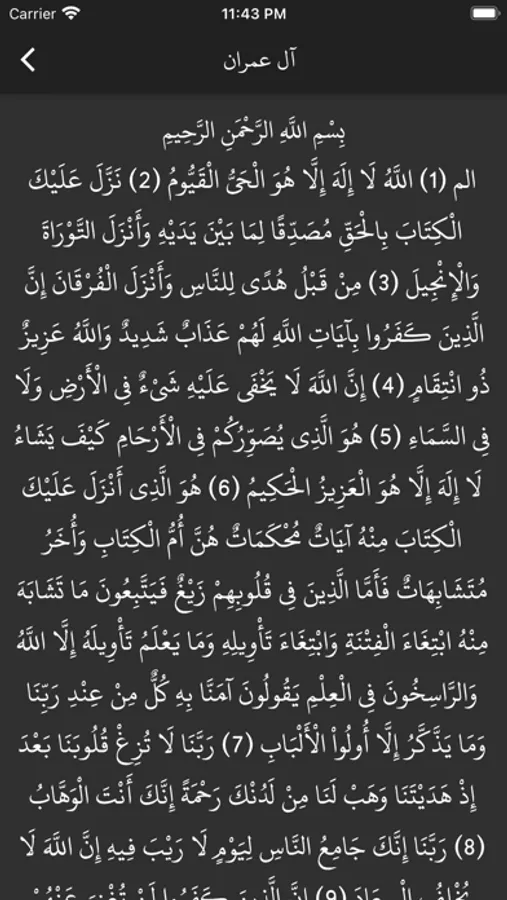 Carrier 11:43 PM
آل عمران
بِسْمِ اللَّهِ الرَّحْمَنِ الرَّحِيمِ
الم (1) اللَّهُ لَا إِلَهَ إِلَّا هُوَ الْحَيُّ الْقَيُّومُ (2) نَزَّلَ عَلَيْكَ
الْكِتَابَ بِالْحَقِّ مُصَدِّقًا لِمَا بَيْنَ يَدَيْهِ وَأَنْزَلَ التَّوْرَاةَ
وَالْإِنْجِيلَ (3) مِنْ قَبْلُ هُدًى لِلنَّاسِ وَأَنْزَلَ الْفُرْقَانَ إِنَّ
الَّذِينَ كَفَرُوا بِآيَاتِ اللَّهِ لَهُمْ عَذَابٌ شَدِيدٌ وَاللَّهُ عَزِيزٌ
ذُو انْتِقَامٍ (4) إِنَّ اللَّهَ لَا يَخْفَى عَلَيْهِ شَيْءٌ فِي الْأَرْضِ وَلَا
فِي السَّمَاءِ (5) هُوَ الَّذِي يُصَوِّرُكُمْ فِي الْأَرْحَامِ كَيْفَ يَشَاءُ
لَا إِلَهَ إِلَّا هُوَ الْعَزِيزُ الْحَكِيمُ (6) هُوَ الَّذِي أَنْزَلَ عَلَيْكَ
الْكِتَابَ مِنْهُ آيَاتٌ مُحْكَمَاتٌ هُنَّ أُمُّ الْكِتَابِ وَأُخَرُ
مُتَشَابِهَاتٌ فَأَمَّا الَّذِينَ فِي قُلُوبِهِمْ زَيْغٌ فَيَتَّبِعُونَ مَا تَشَابَهَ
مِنْهُ ابْتِغَاءَ الْفِتْنَةِ وَابْتِغَاءَ تَأْوِيلِهِ وَمَا يَعْلَمُ تَأْوِيلَهُ إِلَّا اللَّهُ
وَالرَّاسِخُونَ فِي الْعِلْمِ يَقُولُونَ آمَنَّا بِهِ كُلٌّ مِنْ عِنْدِ رَبِّنَا
وَمَا يَذَّكَّرُ إِلَّا أُولُواْ الْأَلْبَابِ (7) رَبَّنَا لَا تُزِغْ قُلُوبَنَا بَعْدَ
إِذْ هَدَيْتَنَا وَهَبْ لَنَا مِنْ لَدُنْكَ رَحْمَةً إِنَّكَ أَنْتَ الْوَهَّابُ
(8) رَبَّنَا إِنَّكَ جَامِعُ النَّاسِ لِيَوْمٍ لَا رَيْبَ فِيهِ إِنَّ اللَّهَ لَا
يُخْلِفُ الْمِيعَادَ (9) إِنَّ الَّذِينَ كَفَرُوا لَنْ تُغْنِيَ عَنْهُمْ